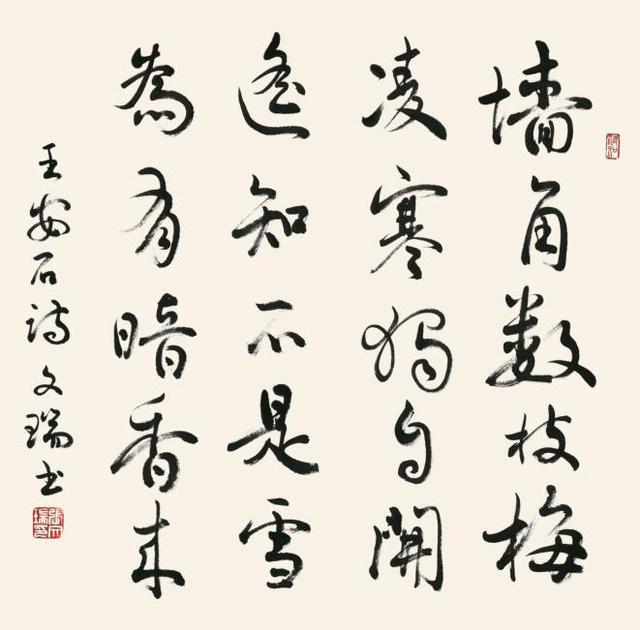 墙角数枝梅
凌寒独自開
遥知不是雪
為有暗香来
王安石诗 文瑞书